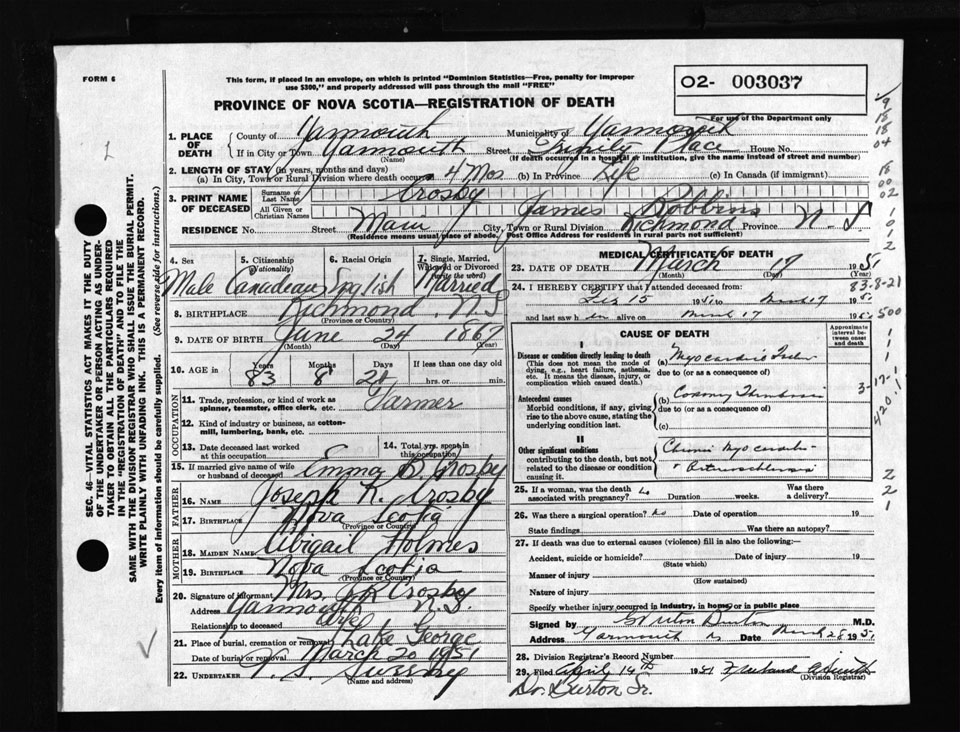 FORM 6
This form, if placed in an envelope, on which is printed "Dominion Statistics—Free, penalty for improper
use $300," and properly addressed will pass through the mail "FREE"
02- 003037
For use of the Department only
PROVINCE OF NOVA SCOTIA—REGISTRATION OF DEATH
1. PLACE OF DEATH
County of Yarmouth Municipality of Yarmouth
If in City or Town Yarmouth Street Trinity Place House No.
(Name) (If death occurred in a hospital or institution, give the name instead of street and number)
2. LENGTH OF STAY (in years, months and days)
(a) In City, Town or Rural Division where death occurred 4 Mos (b) In Province Life (c) In Canada (if immigrant)
3. PRINT NAME OF DECEASED
Surname or Last Name Crosby
All Given or Christian Names James Robbins
RESIDENCE No. Street Main City, Town or Rural Division Richmond Province N.S
(Residence means usual place of abode. Post Office Address for residents in rural parts not sufficient)
4. Sex
5. Citizenship (Nationality)
6. Racial Origin
7. Single, Married, Widowed or Divorced (write the word)
Male Canadian English Married
8. BIRTHPLACE Richmond, N.S
(Province or Country)
9. DATE OF BIRTH June 24 1867
(Month) (Day) (Year)
10. AGE in Years Months Days If less than one day old
83 8 21 hrs. or min.
OCCUPATION
11. Trade, profession, or kind of work as
spinner, teamster, office clerk, etc. Farmer
12. Kind of industry or business, as cotton-
mill, lumbering, bank, etc.
13. Date deceased last worked
at this occupation
14. Total yrs. spent in
this occupation
15. If married give name of wife
or husband of deceased Emma B. Crosby
FATHER
16. NAME Joseph R. Crosby
17. BIRTHPLACE Nova Scotia
(Province or Country)
MOTHER
18. MAIDEN NAME Abigail Holmes
19. BIRTHPLACE Nova Scotia
(Province or Country)
20. Signature of informant Mrs. J R Crosby
Address Yarmouth N.S.
Relationship to deceased Wife
21. Place of burial, cremation or removal Lake George
Date of burial or removal March 20 1951
22. UNDERTAKER V. S. Sweeny
(Name and address)
MEDICAL CERTIFICATE OF DEATH
23. DATE OF DEATH March 17 1951
(Month) (Day)
24. I HEREBY CERTIFY that I attended deceased from:
Feb 15 1951 to March 17 1951
and last saw h im alive on March 17 1951
CAUSE OF DEATH
Approximate interval between onset and death
I
Disease or condition directly leading to death
(This does not mean the mode of
dying, e.g., heart failure, asthenia,
etc. It means the disease, injury, or
complication which caused death.)
(a)
due to (or as a consequence of)
Antecedent causes
Morbid conditions, if any, giving
rise to the above cause, stating the
underlying condition last.
(b) Coronary Thrombosis
due to (or as a consequence of)
(c)
II
Other significant conditions
contributing to the death, but not
related to the disease or condition
causing it.
Chronic Myocarditis
Arteriosclerosis
25. If a woman, was the death
associated with pregnancy? Duration weeks. Was there a delivery?
26. Was there a surgical operation? No Date of operation 19
State findings Was there an autopsy?
27. If death was due to external causes (violence) fill in also the following:
Accident, suicide or homicide? Date of injury 19
(State which)
Manner of injury
(How sustained)
Nature of injury
Specify whether injury occurred in industry, in home, or in public place
Signed by Burton M.D.
Address Yarmouth Date March 28 1951
28. Division Registrar's Record Number
29. Filed April 14th 1951
(Division Registrar)
Dr. Burton Sr.
83-8-21
500
3-17-1
420.1
SEC. 46—VITAL STATISTICS ACT MAKES IT THE DUTY
OF THE UNDERTAKER OR PERSON ACTING AS UNDER-
TAKER TO OBTAIN ALL THE PARTICULARS REQUIRED
IN THE "REGISTRATION OF DEATH" AND TO FILE THE
SAME WITH THE DIVISION REGISTRAR WHO SHALL ISSUE THE BURIAL PERMIT.
WRITE PLAINLY WITH UNFADING INK. THIS IS A PERMANENT RECORD.
Every item of information should be carefully supplied. (See reverse side for instructions.)